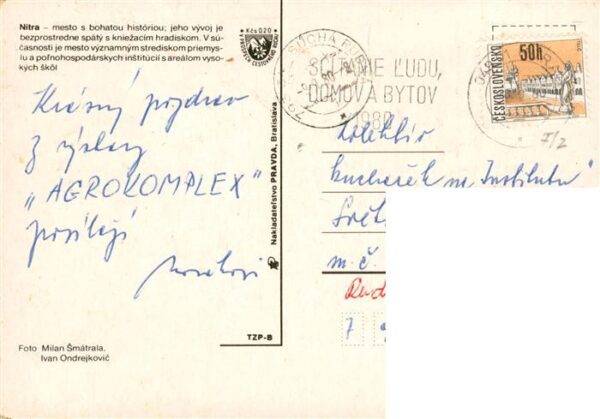 Nitra – mesto s bohatou históriou; jeho vývoj je
bezprostredne spätý s kniežacím hradiskom. V sú-
časnosti je mesto významným strediskom priemys-
lu a poľnohospodárskych inštitúcií s areálom vyso-
kých škôl
Kčs 0,20
Krásný pozdrav
z výstavy
„AGROKOMPLEX"
posílají
Foto Milan Šmátrala,
Ivan Ondrejkovič
Nakladateľstvo PRAVDA, Bratislava
TZP-B
SČÍTANIE ĽUDU,
DOMOV A BYTOV
1980
ČESKOSLOVENSKO
50h
7/2
kolektiv
kuchařek m. Institutu
Svět
m.č.
7